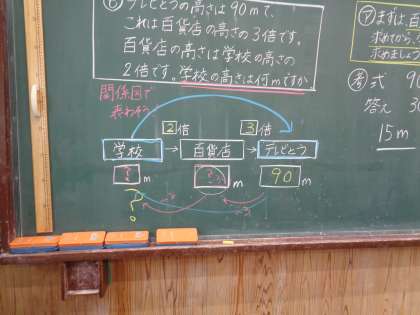 テレビとうの高さは90mで、
これは百貨店の高さの3倍です。
百貨店の高さは学校の高さの
2倍です。学校の高さは何mですか
関係図で
表わそう
2倍 3倍
学校 → 百貨店 → テレビとう
? m ? m 90 m
?
まずは、百
求めてから、
求めましょう
式 90
答え 30
15m